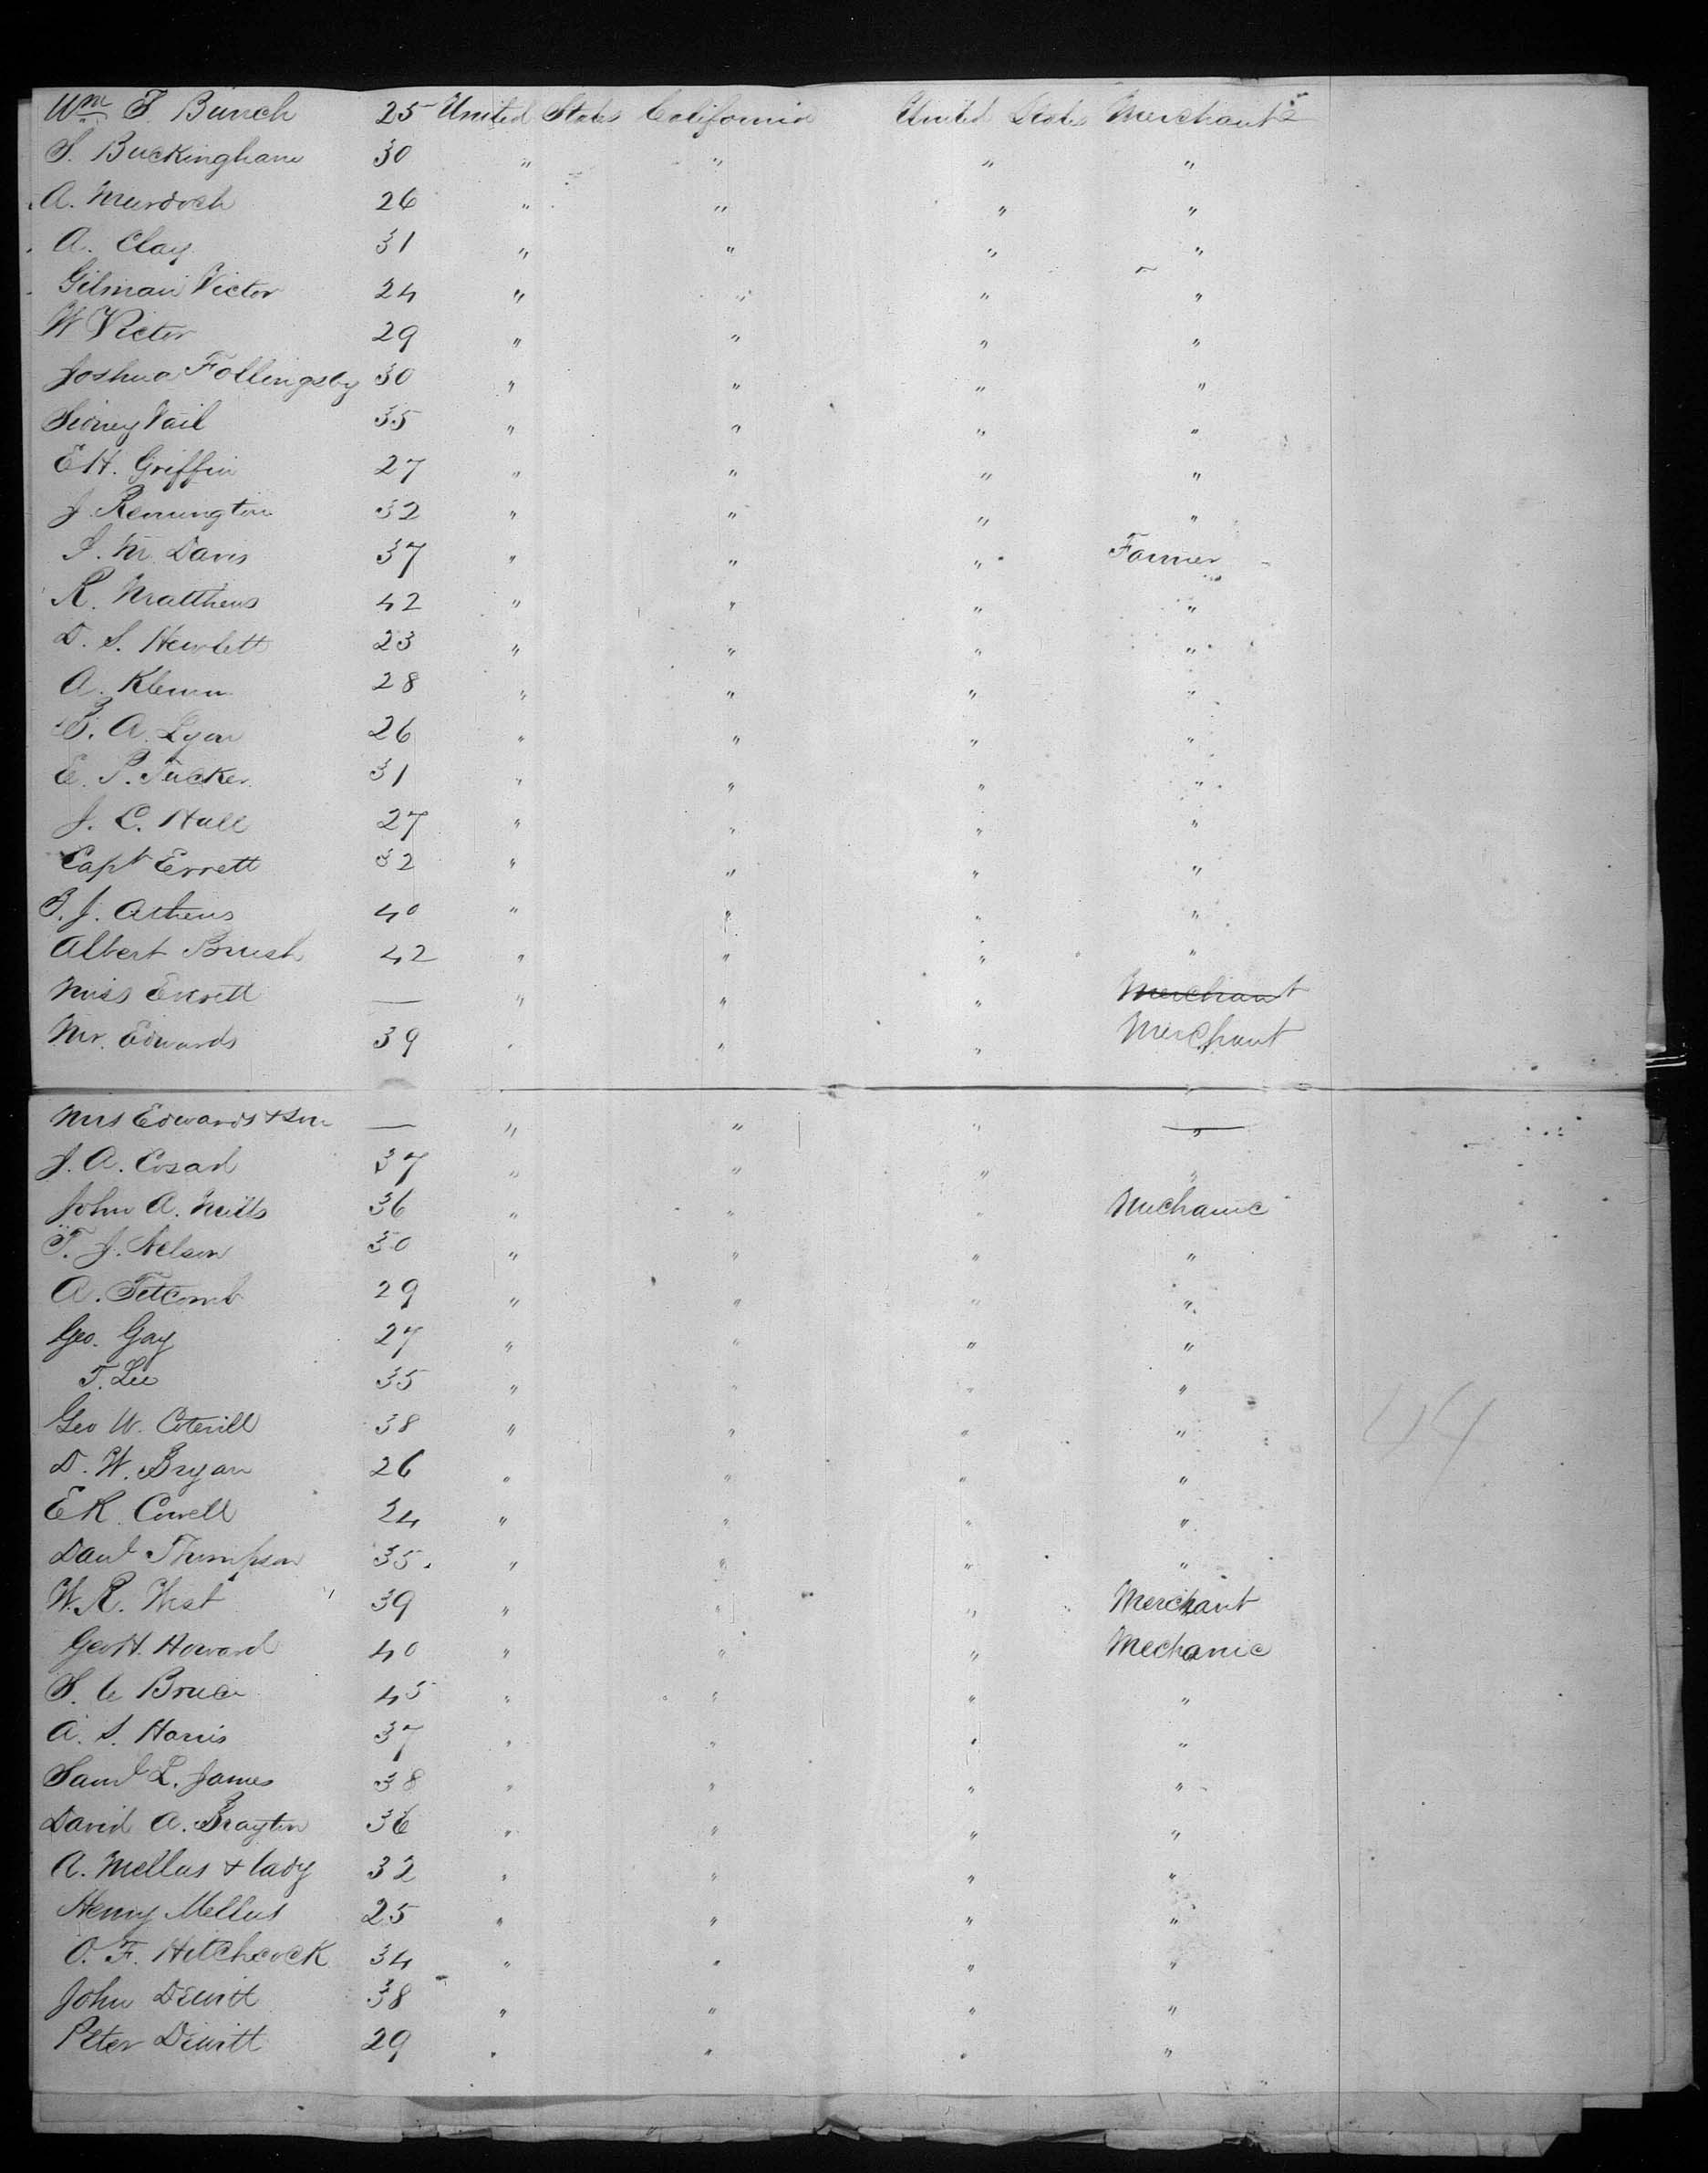 Wm F. Bunch 25 United States California United States Merchant
S. Buckingham 30 " " " "
A. Murdoch 26 " " " "
A. Clay 31 " " " "
Gilman Victor 24 " " " "
W Victor 29 " " " "
Joshua Follingsby 30 " " " "
Sidney Vail 35 " " " "
E H. Griffin 27 " " " "
J Remington 32 " " " "
S. M. Davis 37 " " " Farmer
R. Matthews 42 " " " "
D. S. Hewlett 23 " " " "
A. Klemm 28 " " " "
B. A. Lyon 26 " " " "
E. P. Tucker 31 " " " "
J. C. Hall 27 " " " "
Capt Errett 32 " " " "
B. J. Athens 40 " " " "
Albert Brush 42 " " " "
Miss Errett — " " " Merchant
Mr. Edwards 39 " " " Merchant
Mrs Edwards & Son — " " " "
J. A. Cosad 37 " " " "
John A. Mills 36 " " " Mechanic
T. J. Nelson 30 " " " "
A. Titcomb 29 " " " "
Geo. Gay 27 " " " "
T. Lee 35 " " " "
Geo W. Coterill 38 " " " "
D. W. Bryan 26 " " " "
E K. Cowell 24 " " " "
Danl Thompson 35 " " " "
W. R. West 39 " " " Merchant
Geo H. Howard 40 " " " Mechanic
S. C Bruce 45 " " " "
A. S. Harris 37 " " " "
Saml L. James 38 " " " "
David A. Brayton 36 " " " "
A. Mellus & lady 32 " " " "
Henry Mellus 25 " " " "
O. F. Hitchcock 34 " " " "
John Dewitt 38 " " " "
Peter Dewitt 29 " " " "